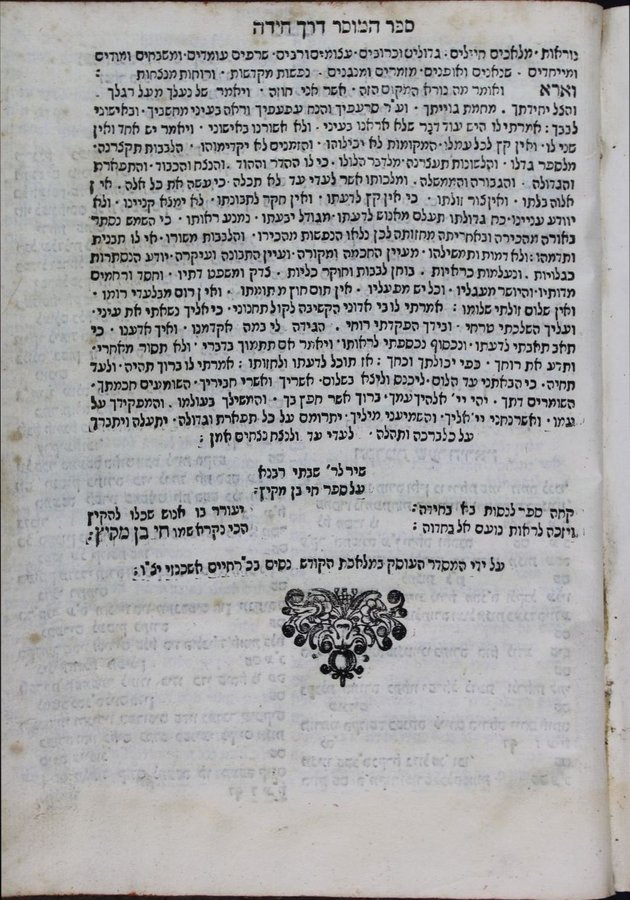 ספר המוסר דרך חידה
נוראות · מלאכים חיילים · גדולים וכרובים · עצומים ורבים · שרפים עומדים · ומשבחים ומודים
ומייחדים · שנאנים ואופנים · מזמרים ומנגנים · נפשות מקדשות · ורוחות מנצחות :
וארא ואומר מה נורא המקום הזה · אשר אני חוזה · ויאמר של נעלך מעל רגלך ·
והצל יחידתך · מחמת גוייתך · וע"ר סרעפיך והנח עפעפיך וראה בעיני מחשביך · ובאישוני
לבבך · אמרתי לו היש עוד דבר שלא אראנו בעיני · ולא אשורנו באישוני · ויאמר יש אחד ואין
שני לו · ואין קץ לכל עמלו · המקומות לא יכילוהו · והזמנים לא יקדימוהו · הלבבות תקצרנה ·
מלספר גדלו · והלשונות תעצרנה · מלדבר הלולו · כי לו ההדר וההוד · והנצח והכבוד · והתפארת
והגדולה · והגבורה והממשלה · ומלכותו אשר לעדי עד לא תכלה · כי עשה את כל אלה · אין
אלוה בלתו · ואין צור זולתו · כי אין קץ לדעתו · ואין חקר לתבונתו · לא ימצא קניינו · ולא
יוודע עניינו · כח גדולתו תעלם מאנוש לדעתו · מגודל יפעתו · נמנע ראותו · כי השמש נסתר
באורה מהכירה ובאחריתה מחזותה לכן נלאו הנפשות מהכירו · והלבבות משורו · אי לו תבנית
ותדמהו · ולא דמות ותמשילהו · מעיין החכמה ומקורה · ועיין התבונה ועיקרה · יודע הנסתרות
כגלויות · ונעלמות כראיות · בוחן לבבות וחוקר כליות · צדק ומשפט דתיו · וחסד ורחמים
מדותיו · והיושר מעגליו · וכל יש מפעליו · אין תום חוץ מתומתו · ואין רום מבלעדי רומו ·
ואין שלום זולתי שלומו : אמרתי לו בי אדוני הקשיבה לקול תחנוני · כי אליך נשאתי את עיני ·
ועליך השלכתי טרחי · ובידך הפקדתי רוחי · הגידה לי במה אקדמנו · ואיך אדענו · כי
תאב תאבתי לדעתו · ונכסוף נכספתי לראותו · ויאמר אם תתמוך בדברי · ולא תסור מאחרי ·
ותדע את רוחך · כפי יכולתך וכחך : אז תוכל לדעתו ולחזותו : אמרתי לו ברוך תהיה · ולעד
תחיה · כי הבאתני עד הלום · ליכנס וליצא בשלום · אשריך ואשרי חביריך · השומעים חכמתך ·
השומרים דתך · יהי יי' אלהיך עמך · ברוך אשר חפץ בך · והמשילך בעולמו · והמפקידך על
עמו · ואשר נחני יי' אליך · והשמיעני מיליך · יתרומם על כל תפארת וגדולה · יתעלה ויתברך
על כל ברכה ותהלה · לעדי עד ולנצח נצחים אמן :
שיר לר' שבתי רבנא
על ספר חי בן מקיץ :
קחה ספר לנסות בא בחידה : יעורר בו אנוש שכלו להקיץ
ויזכה לראות נועם אל בחדוה : הכי נקרא שמו חי בן מקיץ :
על ידי המסדר העוסק במלאכת הקודש נסים בכ"ר חיים אשכנזי יצ"ו :